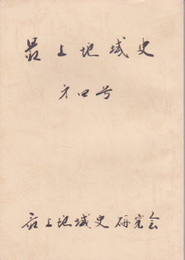 最上地域史
才四号
最上地域史研究会